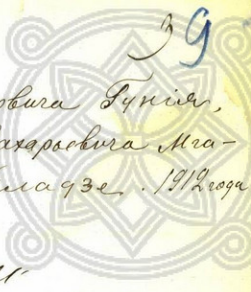 39
овича Гунія,
Захарьевича Мга-
ладзе. 1912 года